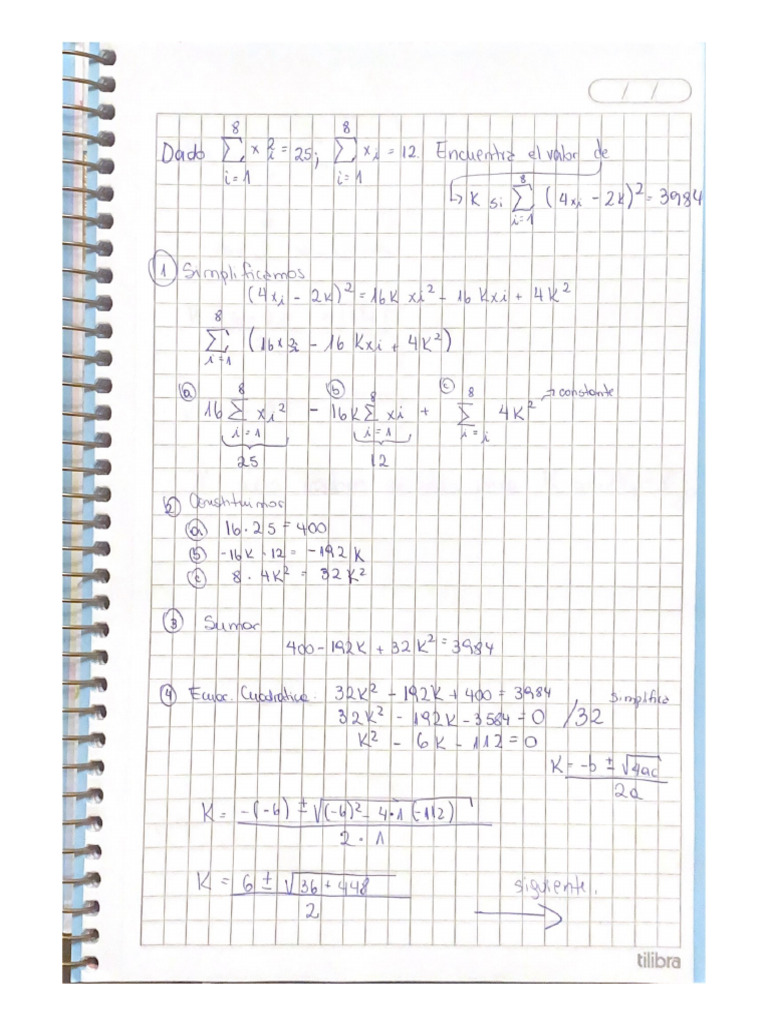 / /
Dado ∑_{i=1}^{8} x_i^2 = 25; ∑_{i=1}^{8} x_i = 12. Encuentra el valor de
↳ K si ∑_{i=1}^{8} (4x_i - 2K)^2 = 3984
① Simplificamos
(4x_i - 2K)^2 = 16K xi^2 - 16 Kxi + 4K^2
∑_{i=1}^{8} (16x_i^2 - 16 Kxi + 4K^2)
ⓐ ⓑ ⓒ → constante
16 ∑_{i=1}^{8} xi^2 - 16K ∑_{i=1}^{8} xi + ∑_{i=i}^{8} 4K^2
25 12
②
ⓐ 16 · 25 = 400
ⓑ -16K · 12 = -192K
ⓒ 8 · 4K^2 = 32K^2
③ Sumar
400 - 192K + 32K^2 = 3984
④ Ecuac. Cuadrática: 32K^2 - 192K + 400 = 3984 simplifica
32K^2 - 192K - 3584 = 0 /32
K^2 - 6K - 112 = 0
K = -b ± √4ac / 2a
K = -(-6) ± √(-6)^2 - 4·1(-112) / 2·1
K = 6 ± √36 + 448 / 2
siguiente.
→
tilibra